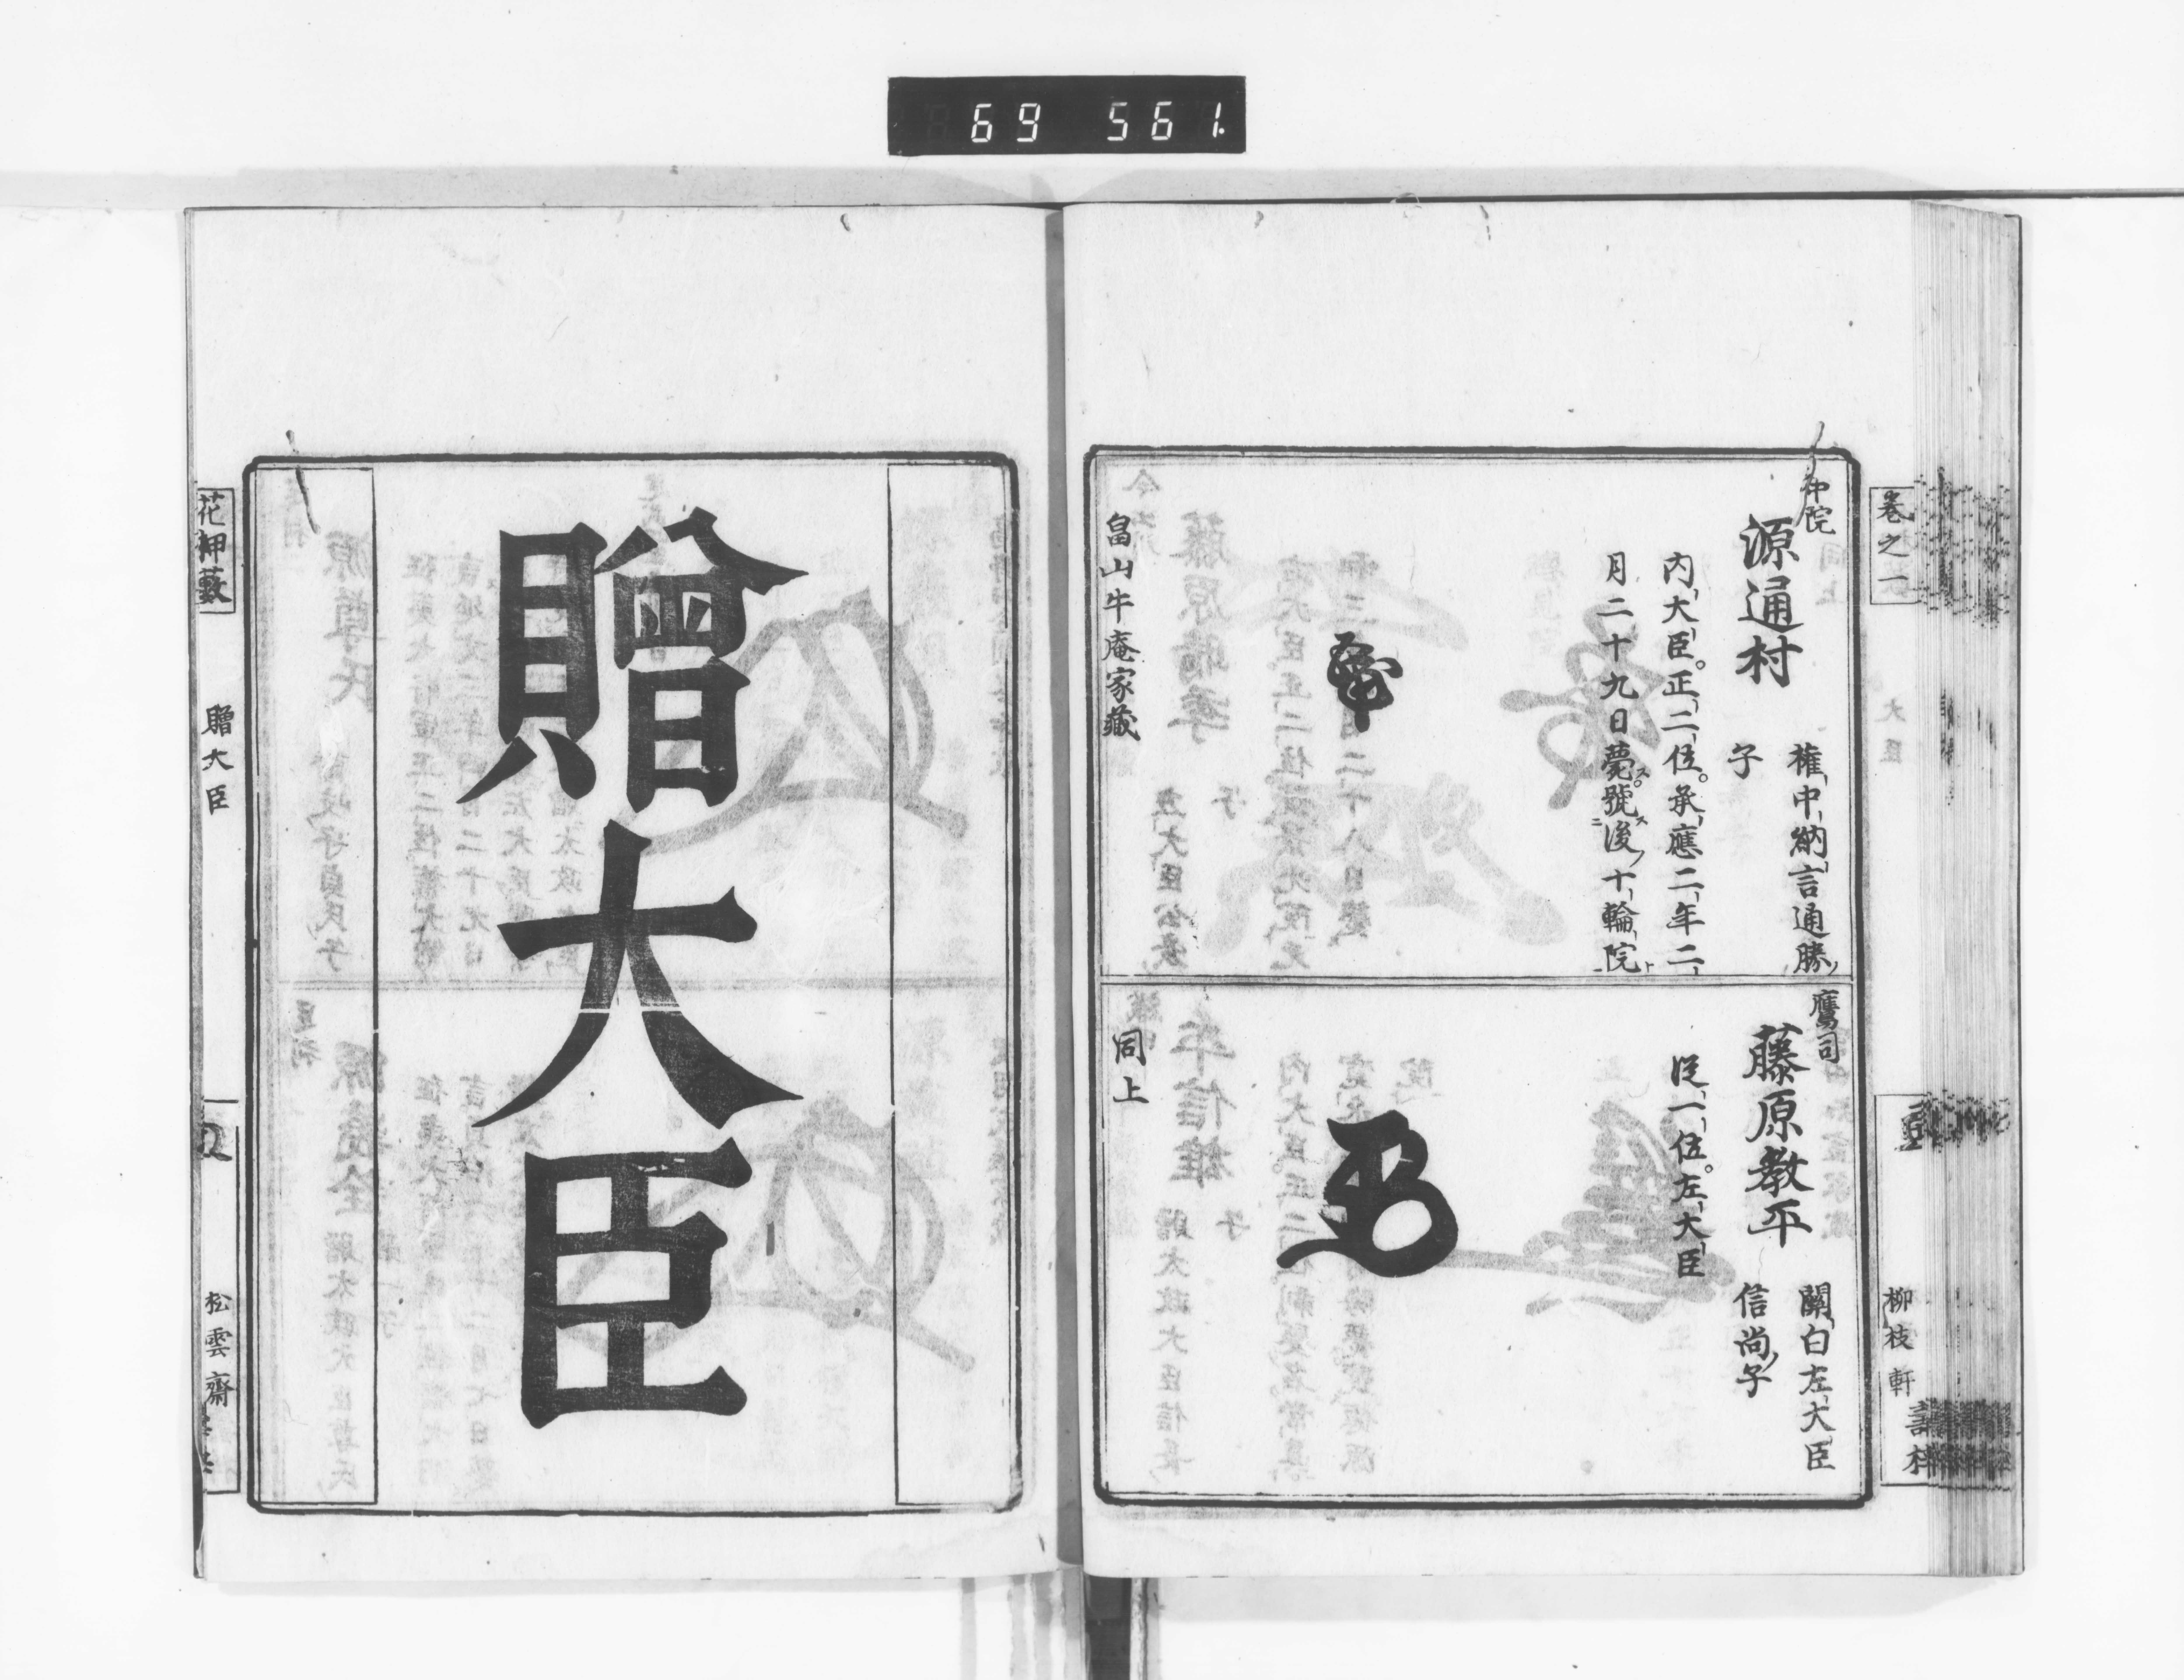 69 561
卷之一
柳枝軒
中院
源通村
權中納言通勝
子
内大臣。正二位。承應二年二
月二十九日薨。號後十輪院
畠山牛庵家藏
鷹司
藤原教平
關白左大臣
信尚子
從一位。左大臣
同上
贈大臣
花押藪
贈大臣
松雲齋